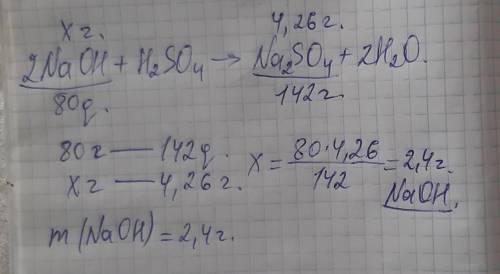 x г. 4,26 г.
2NaOH + H₂SO₄ → Na₂SO₄ + 2H₂O.
80г. 142 г.
80 г — 142 г.
x г — 4,26 г.
x = 80·4,26 / 142 = 2,4 г.
NaOH.
m (NaOH) = 2,4 г.